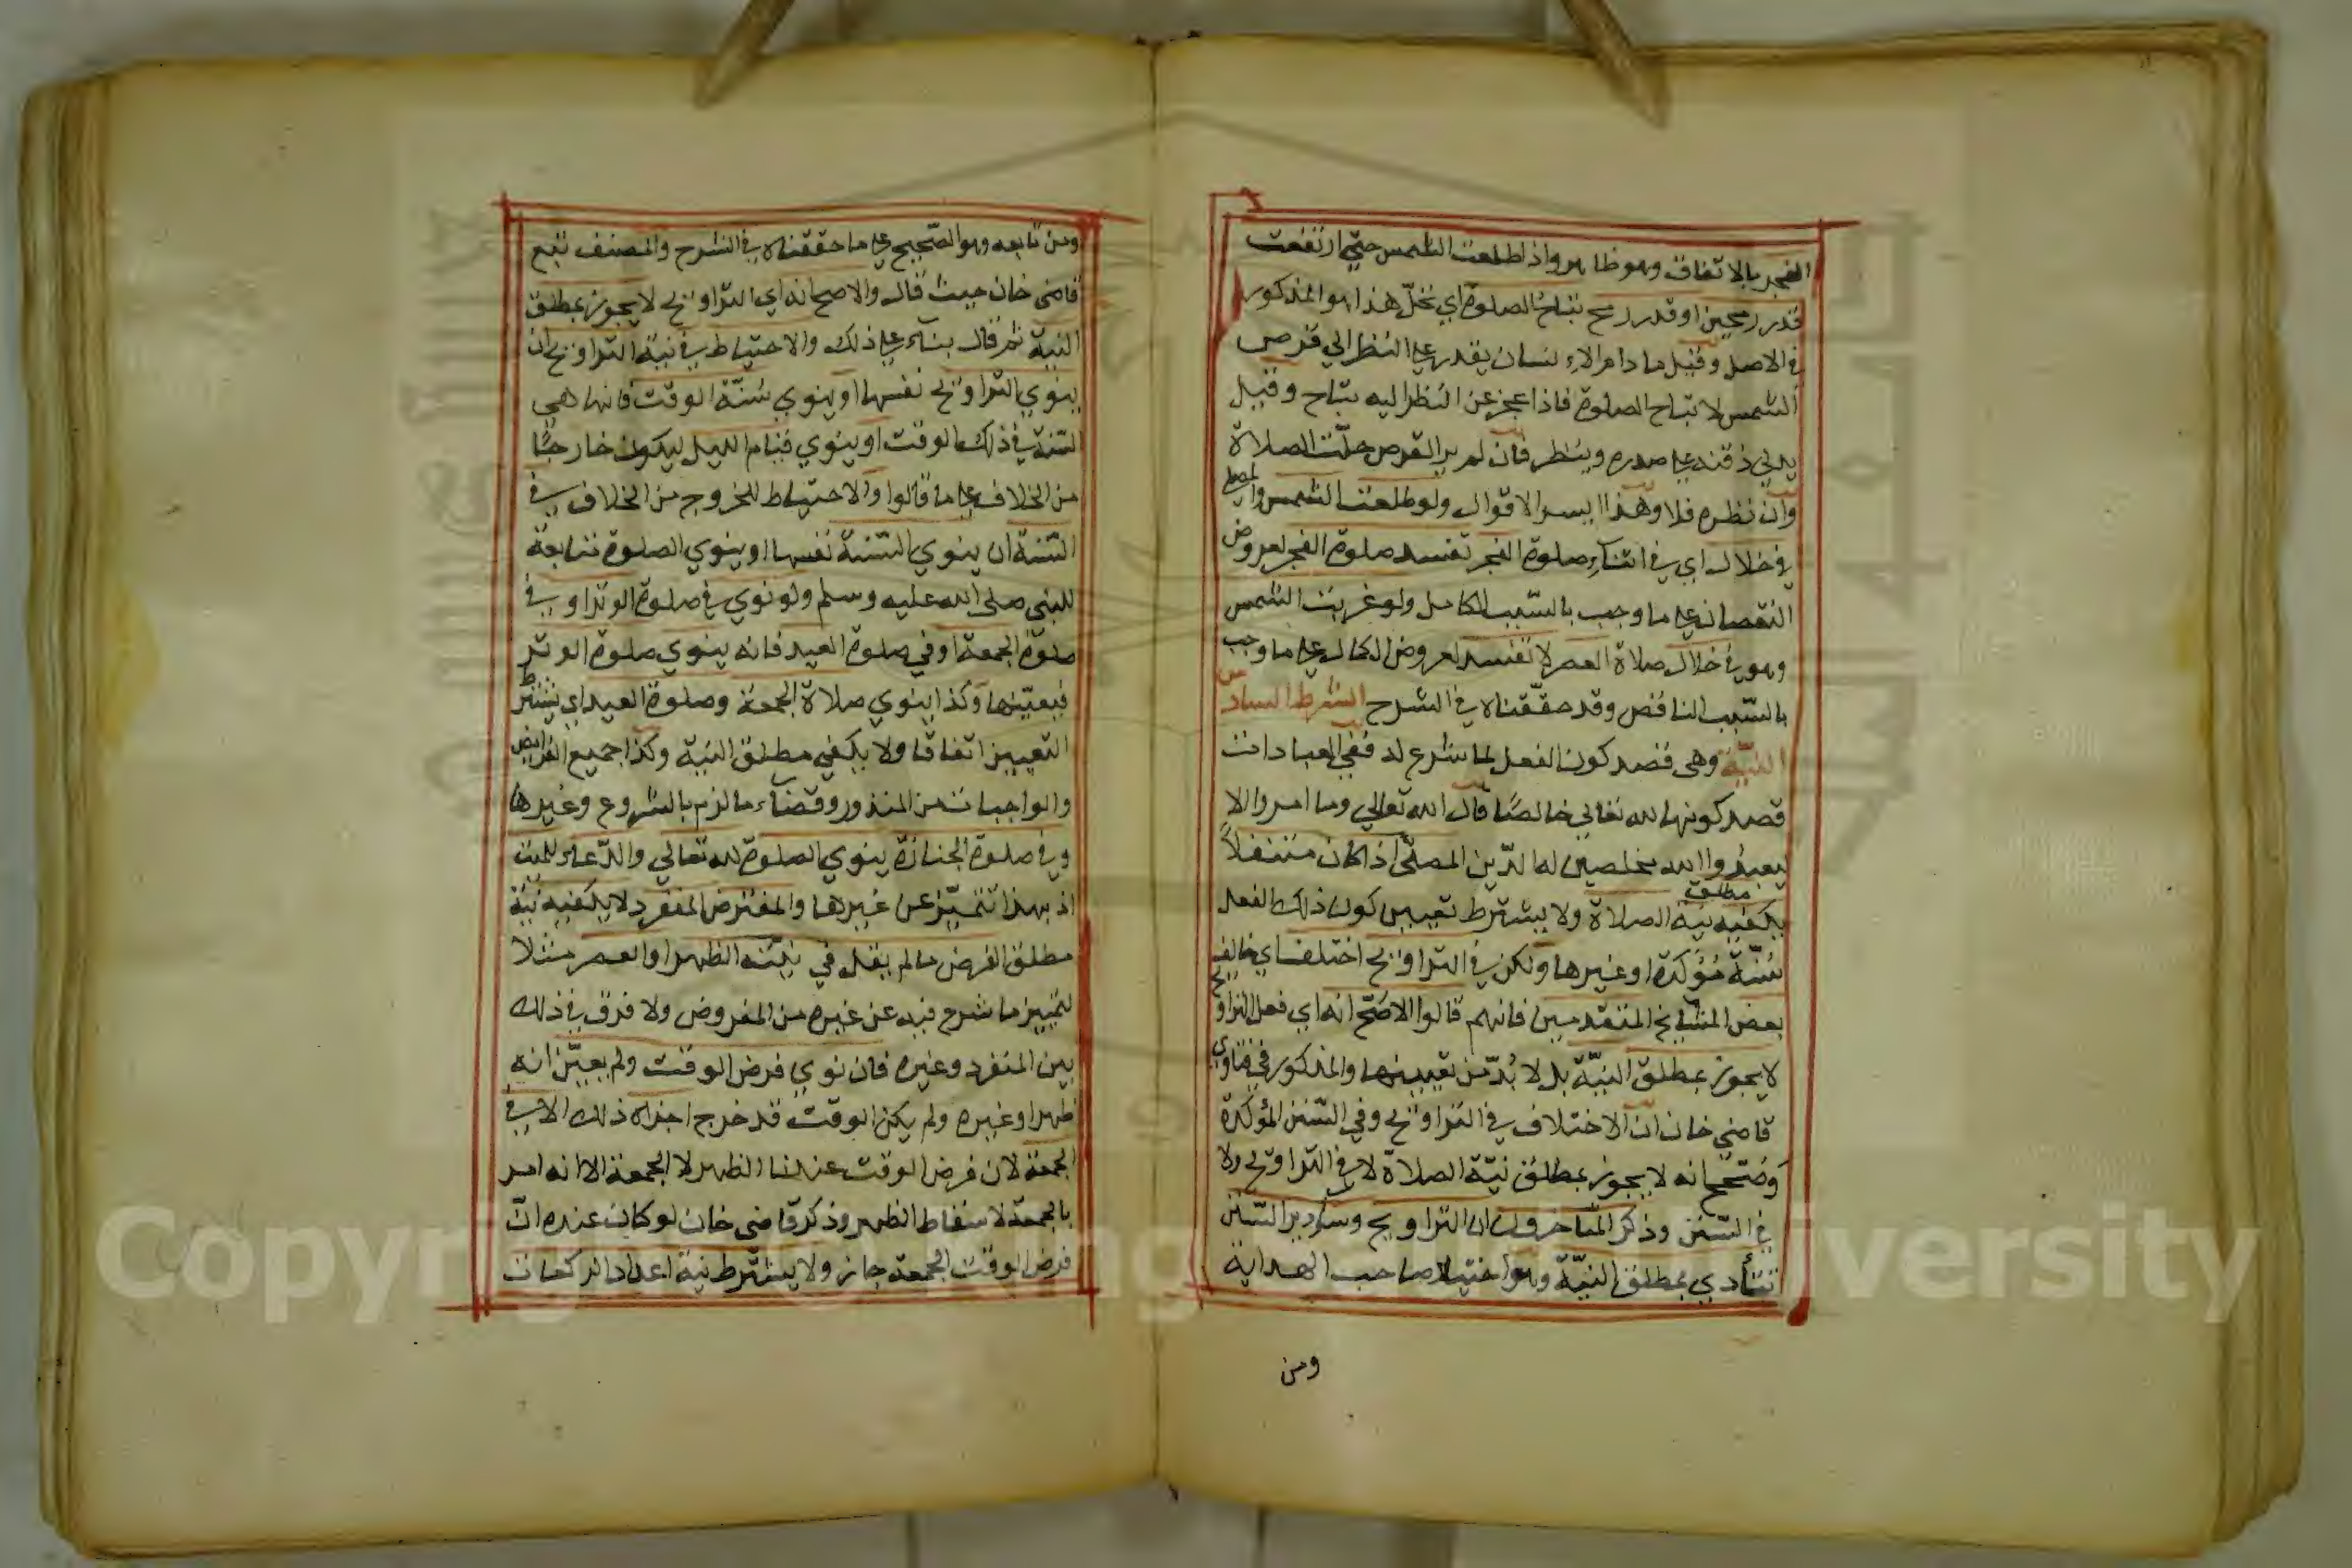 الفجر بالاتفاق وهو ظاهر واذا طلعت الشمس حتي ارتفعت
قدر رمحين او قدر رمح تباح الصلوة اي تحلّ هذا هو المذكور
في الاصل وقيل ما دام الانسان يقدر علي النظر الي قرص
الشمس لا تباح الصلوة فاذا عجز عن النظر اليه تباح وقيل
يدلي ذقنه علي صدره وينظر فان لم ير القرص حلّت الصلاة
وان نظره فلا وهذا ايسر الاقوال ولو طلعت الشمس والمصلي
في خلال اي في اثناء صلوة الفجر تفسد صلوة الفجر لعروض
النقصان علي ما وجب بالسّبب الكامل ولو غربت الشمس
وهو في خلال صلاة العصر لا تفسد لعروض الكمال علي ما وجب
بالسّبب الناقص وقد حقّقناه في الشرح الشرط السادس
النيّة وهي قصد كون الفعل لما شرع له ففي العبادات
قصد كونها لله تعالي خالصًا قال الله تعالي وما امروا الا
ليعبدوا الله مخلصين له الدّين المصلّي اذا كان متنفلاً
يكفيه مطلق نية الصلاة ولا يشترط تعيين كون ذلك الفعل
سُنّة مُؤكّدة او غيرها ولكن في التراويح اختلف اي خالف
بعض المشايخ المتقدمين فانهم قالوا الاصّح انه اي فعل التراويح
لا يجوز بمطلق النيّة بل لا بُدّ من تعيينها والمذكور في فتاوي
قاضي خان ان الاختلاف في التراويح وفي السّنن المؤكدة
وصُحّح انه لا يجوز بمطلق نيّة الصلاة لا في التراويح ولا
في السّنن وذكر المتأخرون ان التراويح وسائر السّنن
تتأدي بمطلق النيّة وهو اختيار صاحب الهداية
ومن
ومن تابعه وهو الصّحيح علي ما حققناه في الشرح والمصنف تبع
قاضي خان حيث قال والاصح انه اي التراويح لا يجوز بمطلق
النية ثم قال بناء علي ذلك والاحتياط في نية التراويح ان
ينوي التراويح نفسها او ينوي سُنّة الوقت فانها هي
السّنة في ذلك الوقت او ينوي قيام الليل ليكون خارجًا
من الخلاف علي ما قالوا والاحتياط للخروج من الخلاف في
السّنة ان ينوي السّنة نفسها او ينوي الصلوة متابعة
للنبي صلي الله عليه وسلم ولو نوي في صلوة الوتر او في
صلوة الجمعة او في صلوة العيد فانه ينوي صلوة الوتر
فيعيّنها وكذا ينوي صلاة الجمعة وصلوة العيد اي يشترط
التعيين اتفاقا ولا يكفي مطلق النية وكذا جميع الفرايض
والواجبات من المنذور وقضاء ما لزم بالشروع وغيرها
وفي صلوة الجنازة ينوي الصلوة لله تعالي والدّعاء للميت
اذ بهذا تتميّز عن غيرها والمفترض المنفرد لا يكفيه نية
مطلق الفرض ما لم يقل في نيّته الظهر او العصر مثلا
لتمييز ما شرع فيه عن غيره من المفروض ولا فرق في ذلك
بين المنفرد وغيره فان نوي فرض الوقت ولم يعيّن انه
ظهر او غيره ولم يكن الوقت قد خرج اجزاه ذلك الا في
الجمعة لان فرض الوقت عندنا الظهر لا الجمعة الا انه امر
بالجمعة لاسقاط الظهر وذكر قاضي خان لو كان عنده انّ
فرض الوقت الجمعة جاز ولا يشترط نية اعداد الركعات